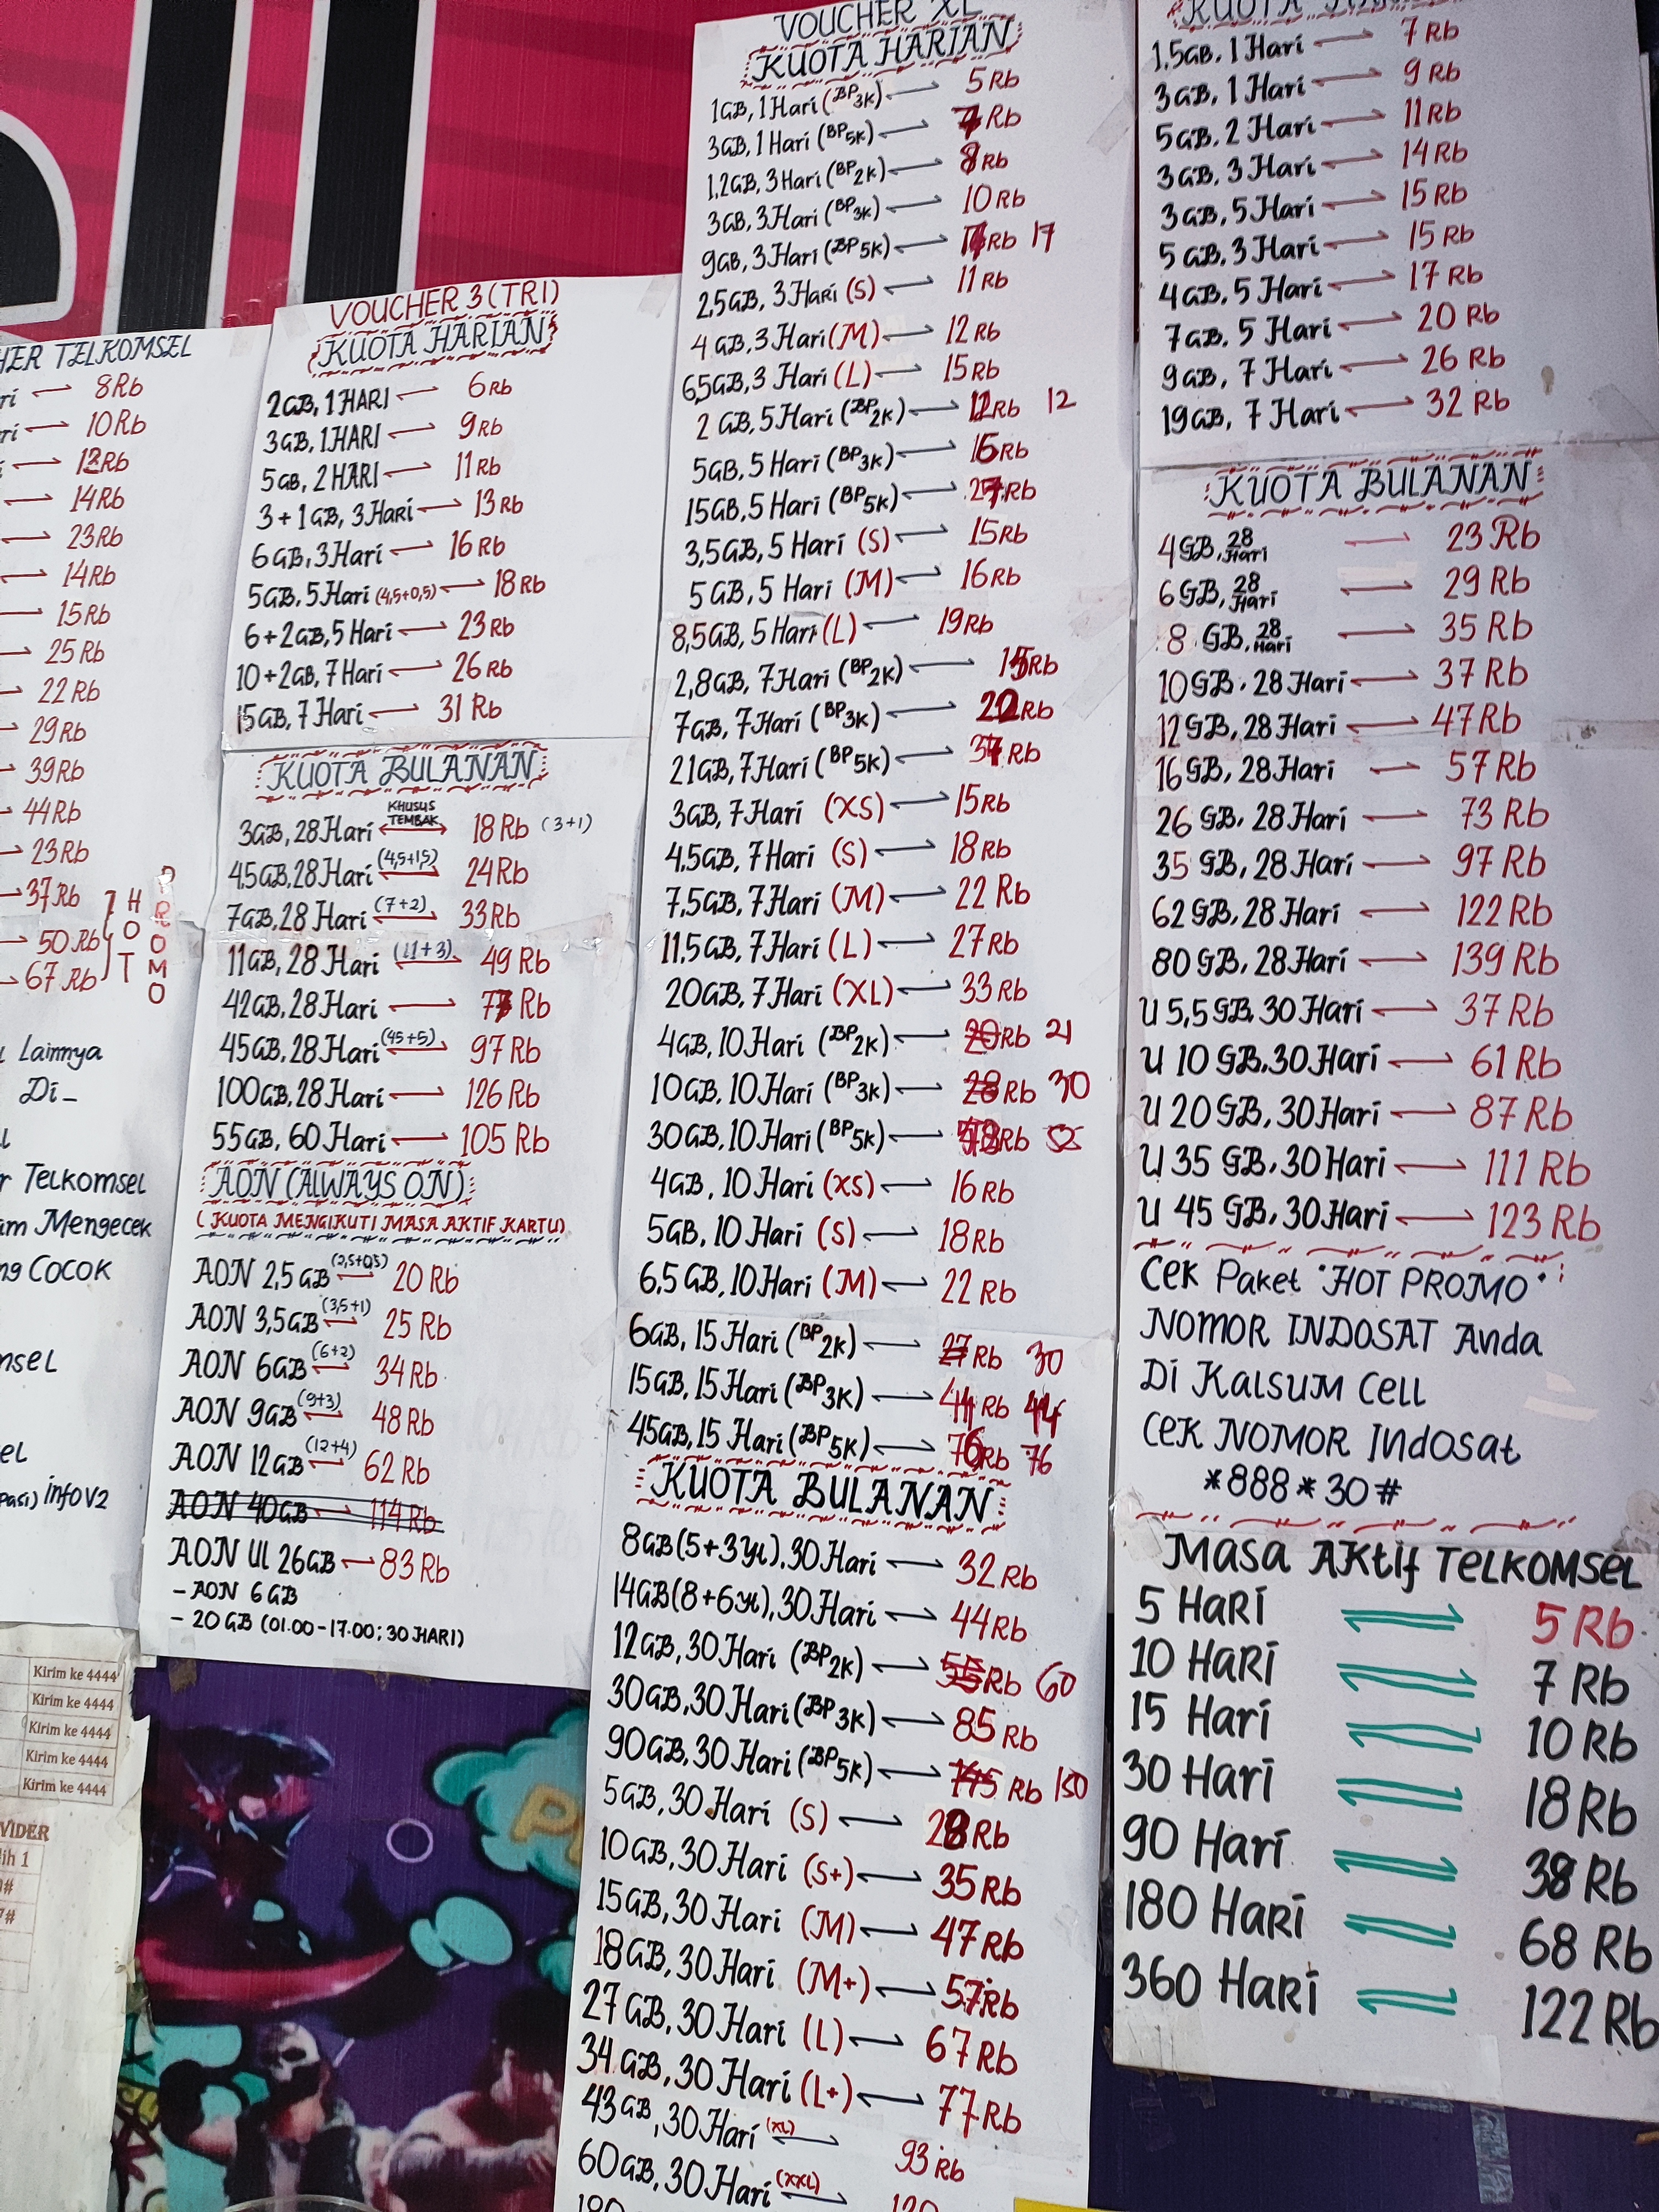 HER TELKOMSEL
ri 8Rb
ri 10Rb
14Rb
23Rb
14Rb
15Rb
25Rb
22Rb
29Rb
39Rb
44Rb
23Rb
37Rb
50Rb
67Rb
HOT
PROMO
Lainnya
Di_
r Telkomsel
am Mengecek
ng COCOK
msel
el
infoV2
Kirim ke 4444
Kirim ke 4444
Kirim ke 4444
Kirim ke 4444
Kirim ke 4444
VIDER
lih 1
VOUCHER 3 (TRI)
KUOTA HARIAN
2GB, 1 HARI 6Rb
3GB, 1HARI 9Rb
5GB, 2 HARI 11Rb
3+1GB, 3 Hari 13Rb
6GB, 3Hari 16Rb
5GB, 5Hari (4,5+0,5) 18Rb
6+2GB, 5 Hari 23Rb
10+2GB, 7 Hari 26Rb
15GB, 7 Hari 31 Rb
KUOTA BULANAN
3GB, 28Hari KHUSUS TEMBAK 18Rb (3+1)
4,5GB, 28Hari (4,5+1,5) 24Rb
7GB, 28 Hari (7+2) 33Rb
11GB, 28 Hari (11+3) 49 Rb
42GB, 28Hari Rb
45GB, 28Hari (45+5) 97Rb
100GB, 28Hari 126 Rb
55GB, 60 Hari 105 Rb
AON (ALWAYS ON)
(KUOTA MENGIKUTI MASA AKTIF KARTU)
AON 2,5 GB (2,5+0,5) 20 Rb
AON 3,5GB (3,5+1) 25 Rb
AON 6GB (6+2) 34 Rb
AON 9GB (9+3) 48 Rb
AON 12GB (12+4) 62 Rb
AON 40GB 114 Rb
AON UL 26GB 83 Rb
- AON 6 GB
- 20 GB (01.00-17.00; 30 HARI)
VOUCHER XL
KUOTA HARIAN
1GB, 1 Hari (BP 3K) 5 Rb
3GB, 1 Hari (BP 5K) Rb
1,2GB, 3 Hari (BP 2K) 8Rb
3GB, 3 Hari (BP 3K) 10Rb
9GB, 3 Hari (BP 5K) Rb 17
2,5GB, 3 Hari (S) 11 Rb
4 GB, 3 Hari (M) 12 Rb
6,5GB, 3 Hari (L) 15Rb
2 GB, 5 Hari (BP 2K) Rb 12
5GB, 5 Hari (BP 3K) 16Rb
15GB, 5 Hari (BP 5K) Rb
3,5GB, 5 Hari (S) 15Rb
5 GB, 5 Hari (M) 16Rb
8,5GB, 5 Hari (L) 19Rb
2,8GB, 7Hari (BP 2K) 15Rb
7GB, 7Hari (BP 3K) Rb
21GB, 7Hari (BP 5K) Rb
3GB, 7 Hari (XS) 15Rb
4,5GB, 7 Hari (S) 18Rb
7,5GB, 7 Hari (M) 22 Rb
11,5GB, 7 Hari (L) 27Rb
20GB, 7 Hari (XL) 33Rb
4GB, 10 Hari (BP 2K) 20Rb 21
10GB, 10 Hari (BP 3K) 28Rb 30
30GB, 10Hari (BP 5K) Rb 52
4GB, 10 Hari (XS) 16Rb
5GB, 10 Hari (S) 18Rb
6,5 GB, 10Hari (M) 22 Rb
6GB, 15 Hari (BP 2K) 27Rb 30
15GB, 15 Hari (BP 3K) Rb 44
45GB, 15 Hari (BP 5K) 76Rb 76
KUOTA BULANAN
8GB (5+3 yt), 30 Hari 32Rb
14GB (8+6 yt), 30 Hari 44Rb
12GB, 30 Hari (BP 2K) 55Rb 60
30GB, 30 Hari (BP 3K) 85 Rb
90GB, 30 Hari (BP 5K) Rb 150
5GB, 30 Hari (S) 28Rb
10GB, 30Hari (S+) 35Rb
15GB, 30Hari (M) 47Rb
18GB, 30Hari (M+) 57Rb
27GB, 30 Hari (L) 67Rb
34GB, 30 Hari (L+) 77Rb
43GB, 30Hari (XL) 93Rb
60GB, 30 Hari (XXL) 120
180
KUOTA HARIAN
1,5GB, 1 Hari 7Rb
3GB, 1 Hari 9Rb
5GB, 2 Hari 11Rb
3GB, 3 Hari 14Rb
3GB, 5 Hari 15Rb
5GB, 3 Hari 15 Rb
4GB, 5 Hari 17 Rb
7GB, 5 Hari 20 Rb
9GB, 7 Hari 26 Rb
19GB, 7 Hari 32 Rb
KUOTA BULANAN
4GB, 28 Hari 23 Rb
6GB, 28 Hari 29 Rb
8 GB, 28 Hari 35 Rb
10GB, 28 Hari 37 Rb
12GB, 28 Hari 47Rb
16GB, 28Hari 57 Rb
26 GB, 28 Hari 73 Rb
35 GB, 28 Hari 97 Rb
62 GB, 28 Hari 122 Rb
80 GB, 28Hari 139 Rb
U 5,5 GB, 30 Hari 37 Rb
U 10 GB, 30 Hari 61 Rb
U 20 GB, 30Hari 87 Rb
U 35 GB, 30 Hari 111 Rb
U 45 GB, 30Hari 123 Rb
Cek Paket "HOT PROMO"
NOMOR INDOSAT Anda
Di Kalsum Cell
Cek NOMOR Indosat
*888*30#
Masa Aktif TELKOMSEL
5 Hari 5 Rb
10 Hari 7 Rb
15 Hari 10 Rb
30 Hari 18 Rb
90 Hari 38 Rb
180 Hari 68 Rb
360 Hari 122 Rb